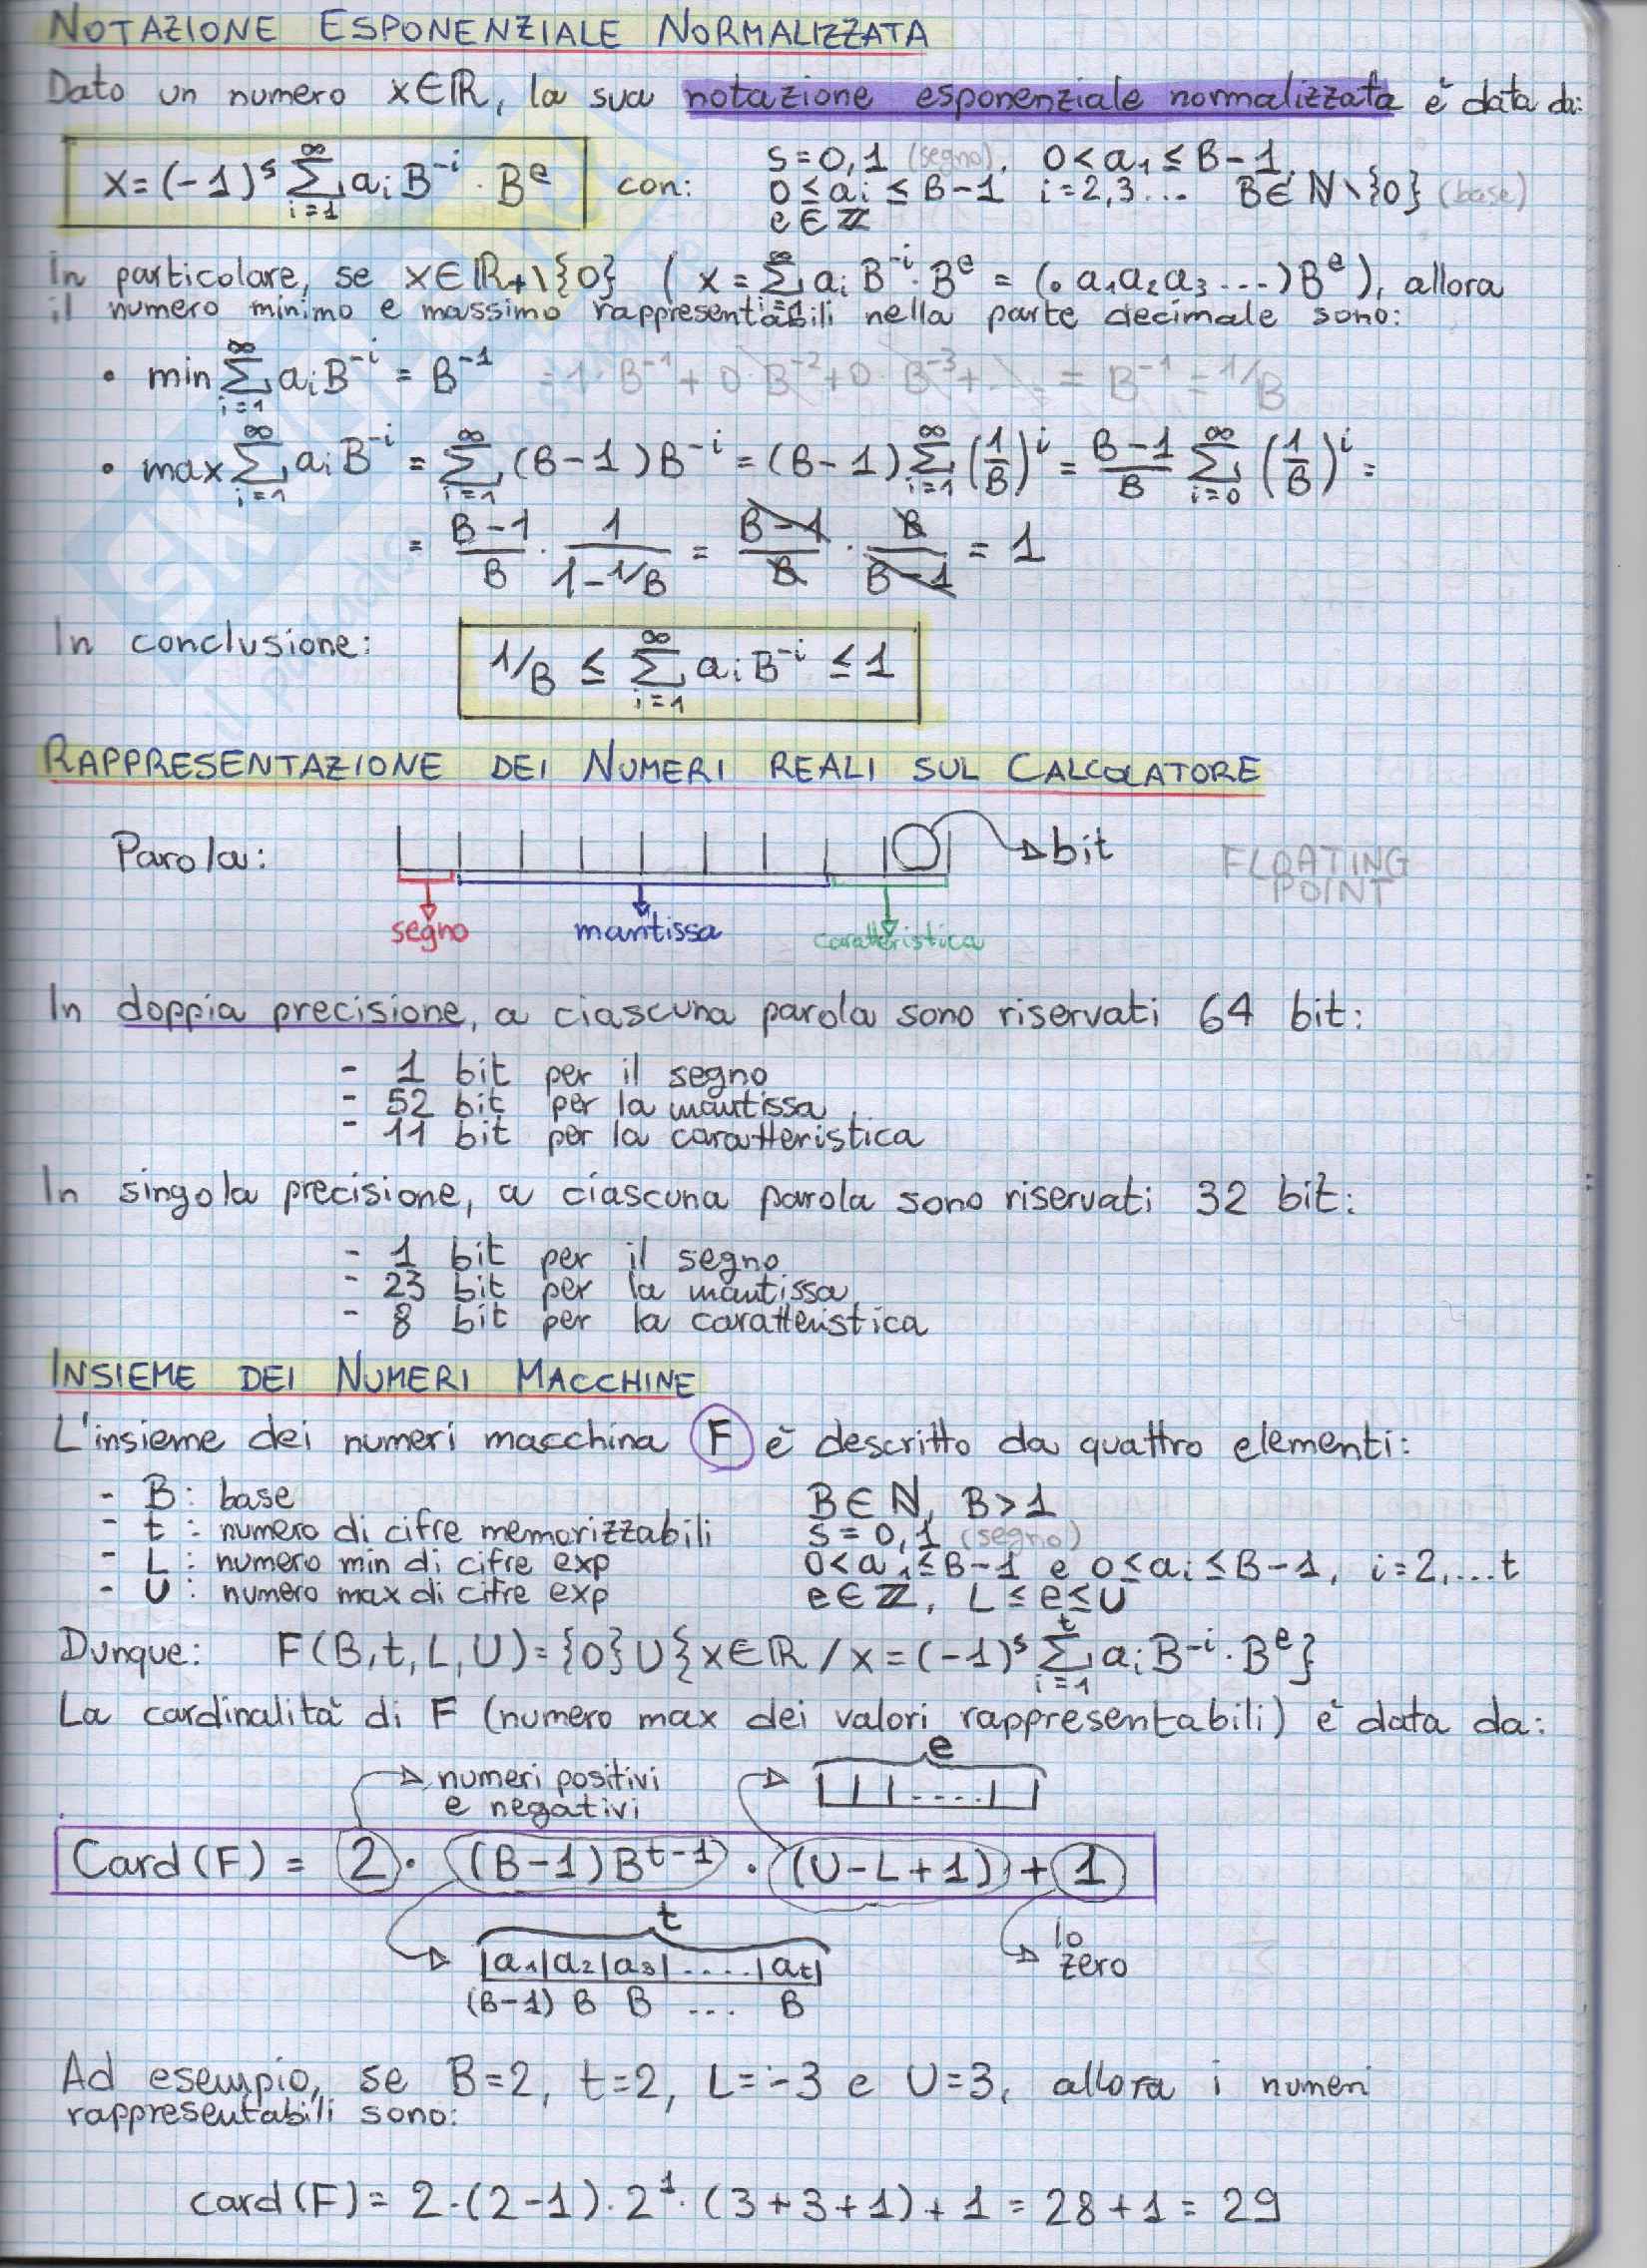 NOTAZIONE ESPONENZIALE NORMALIZZATA
Dato un numero x∈ℝ, la sua notazione esponenziale normalizzata è data da:
x=(-1)^s ∑_{i=1}^{∞} a_i B^{-i} · B^e con: s=0,1 (segno), 0<a_1≤B-1,
0≤a_i≤B-1 i=2,3... B∈ℕ\{0} (base)
e∈ℤ
In particolare, se x∈ℝ+\{0} (x=∑_{i=1}^{∞} a_i B^{-i}·B^e = (.a_1a_2a_3...)B^e), allora
il numero minimo e massimo rappresentabili nella parte decimale sono:
• min ∑_{i=1}^{∞} a_i B^{-i} = B^{-1} =1·B^{-1}+0·B^{-2}+0·B^{-3}+... = B^{-1} = 1/B
• max ∑_{i=1}^{∞} a_i B^{-i} = ∑_{i=1}^{∞} (B-1)B^{-i} = (B-1)∑_{i=1}^{∞} (1/B)^i = (B-1)/B ∑_{i=0}^{∞} (1/B)^i =
= (B-1)/B · 1/(1-1/B) = (B-1)/B · B/(B-1) = 1
In conclusione: 1/B ≤ ∑_{i=1}^{∞} a_i B^{-i} ≤ 1
RAPPRESENTAZIONE DEI NUMERI REALI SUL CALCOLATORE
Parola: bit FLOATING
POINT
segno mantissa caratteristica
In doppia precisione, a ciascuna parola sono riservati 64 bit:
- 1 bit per il segno
- 52 bit per la mantissa
- 11 bit per la caratteristica
In singola precisione, a ciascuna parola sono riservati 32 bit:
- 1 bit per il segno
- 23 bit per la mantissa
- 8 bit per la caratteristica
INSIEME DEI NUMERI MACCHINE
L'insieme dei numeri macchina F è descritto da quattro elementi:
- B: base B∈ℕ, B>1
- t: numero di cifre memorizzabili s=0,1 (segno)
- L: numero min di cifre exp 0<a_1≤B-1 e 0≤a_i≤B-1, i=2,...t
- U: numero max di cifre exp e∈ℤ, L≤e≤U
Dunque: F(B,t,L,U)={0}U{x∈ℝ/x=(-1)^s ∑_{i=1}^{t} a_i B^{-i}·B^e}
La cardinalità di F (numero max dei valori rappresentabili) è data da:
e
numeri positivi
e negativi
Card(F) = 2·(B-1)B^{t-1}·(U-L+1)+1
t
|a_1|a_2|a_3|....|a_t|
(B-1) B B ... B
lo
zero
Ad esempio, se B=2, t=2, L=-3 e U=3, allora i numeri
rappresentabili sono:
card(F)= 2·(2-1)·2^1·(3+3+1)+1 = 28+1 = 29